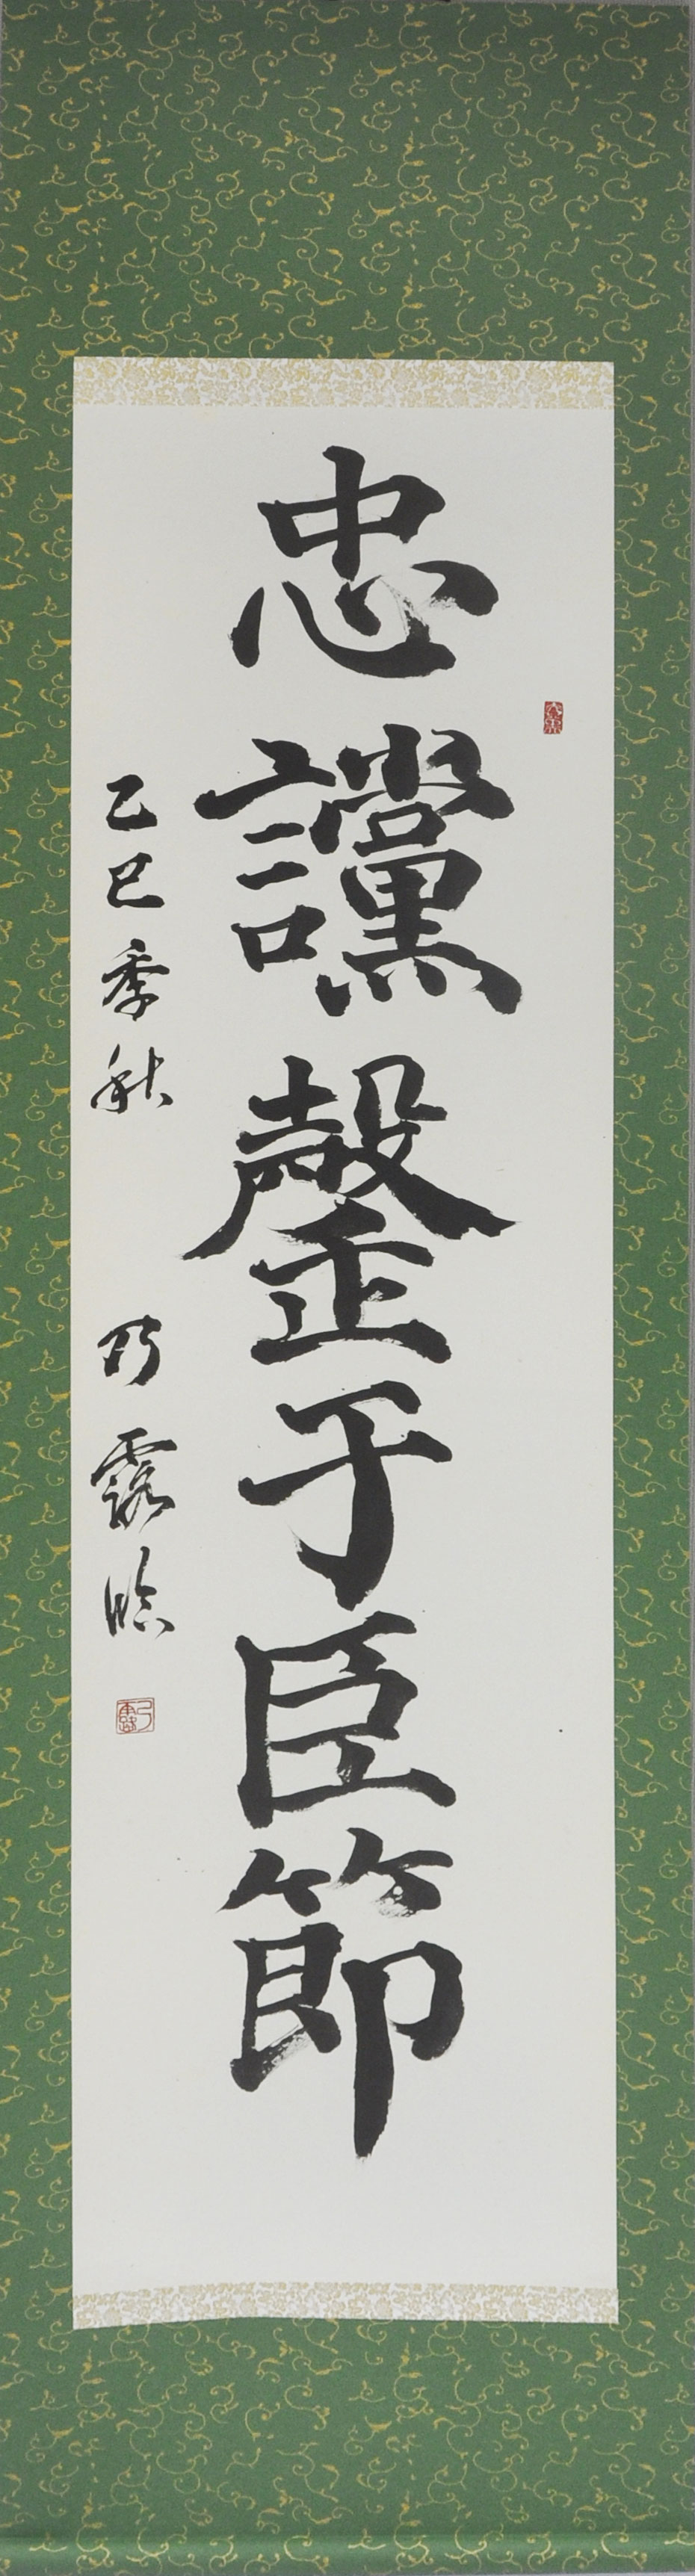 忠讜罄于臣節
乙巳季秋 乃露臨